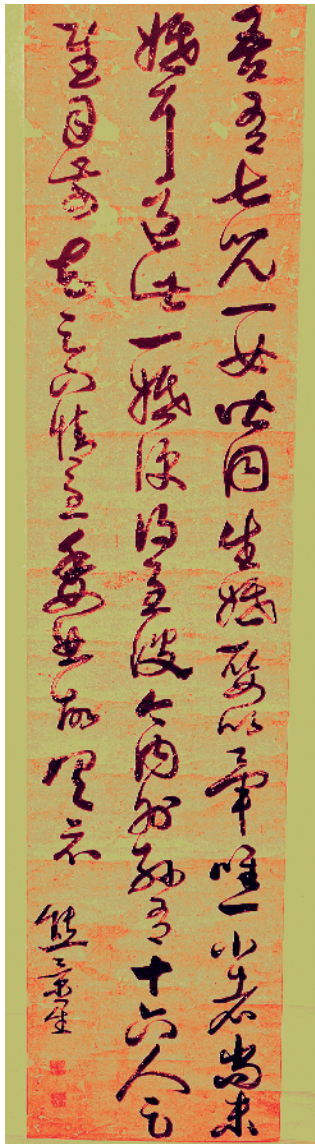 吾有七兒一女皆同生婚娶以畢唯一小者尚未
婚耳過此一婚便得至彼今内外孫有十六人足
慰目前足下情至委曲故具示
熊景星